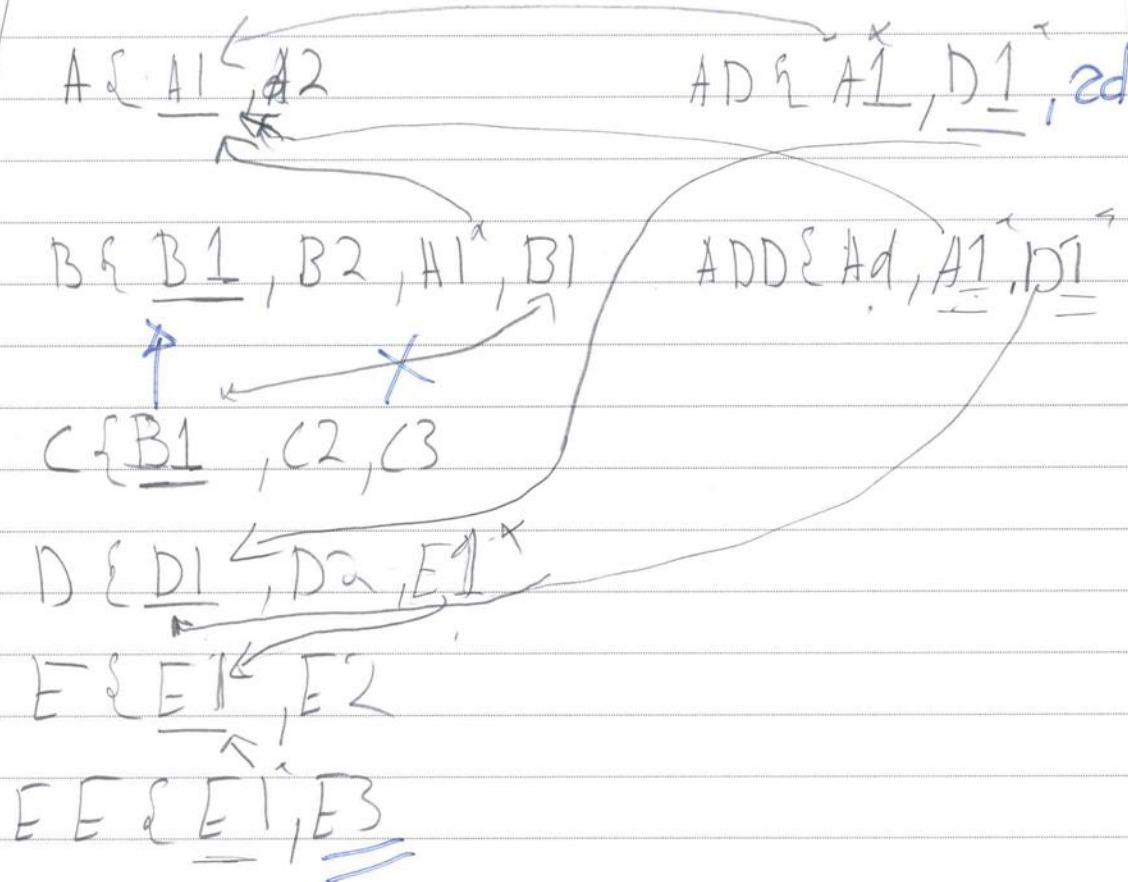 A{ A1, A2
AD{ A1*, D1*, 2d
B{ B1, B2, A1*, B1
ADD{ Ad, A1*, D1*
C{ B1, C2, C3
D{ D1, D2, E1*
E{ E1, E2
EE{ E1*, E3